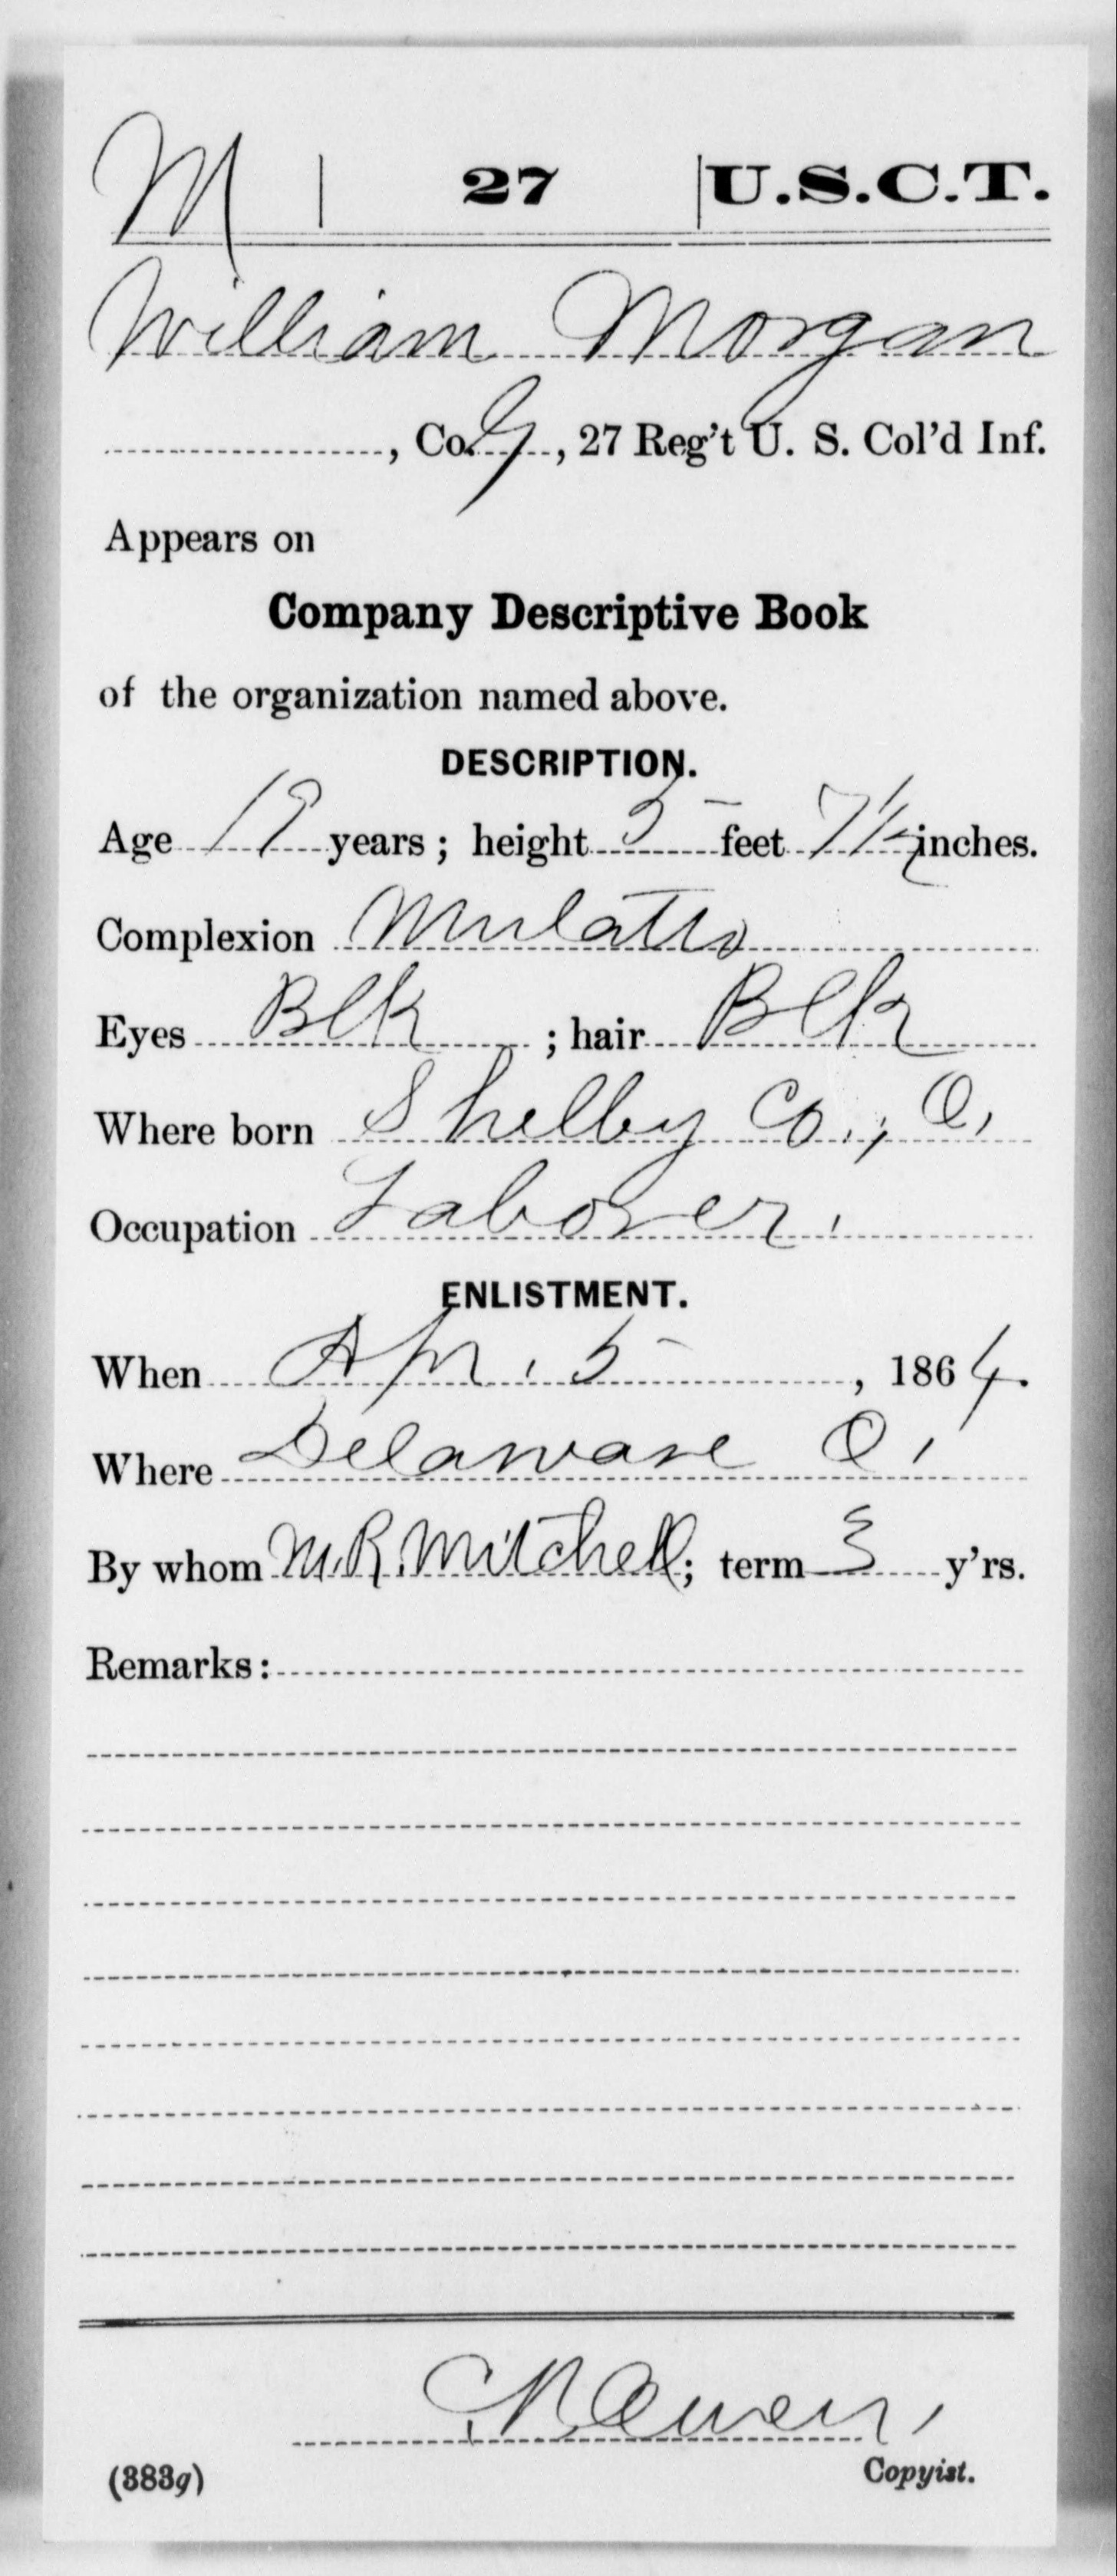 M | 27 | U.S.C.T.
William Morgan
, Co. G, 27 Reg't U. S. Col'd Inf.
Appears on
Company Descriptive Book
of the organization named above.
DESCRIPTION.
Age 19 years; height 5 feet 7½ inches.
Complexion Mulatto
Eyes Blk ; hair Blk
Where born Shelby Co., O.
Occupation Laborer.
ENLISTMENT.
When Apr. 5, 1864.
Where Delaware O.
By whom M.R. Mitchell; term 3 y'rs.
Remarks:
Owen
(383g) Copyist.